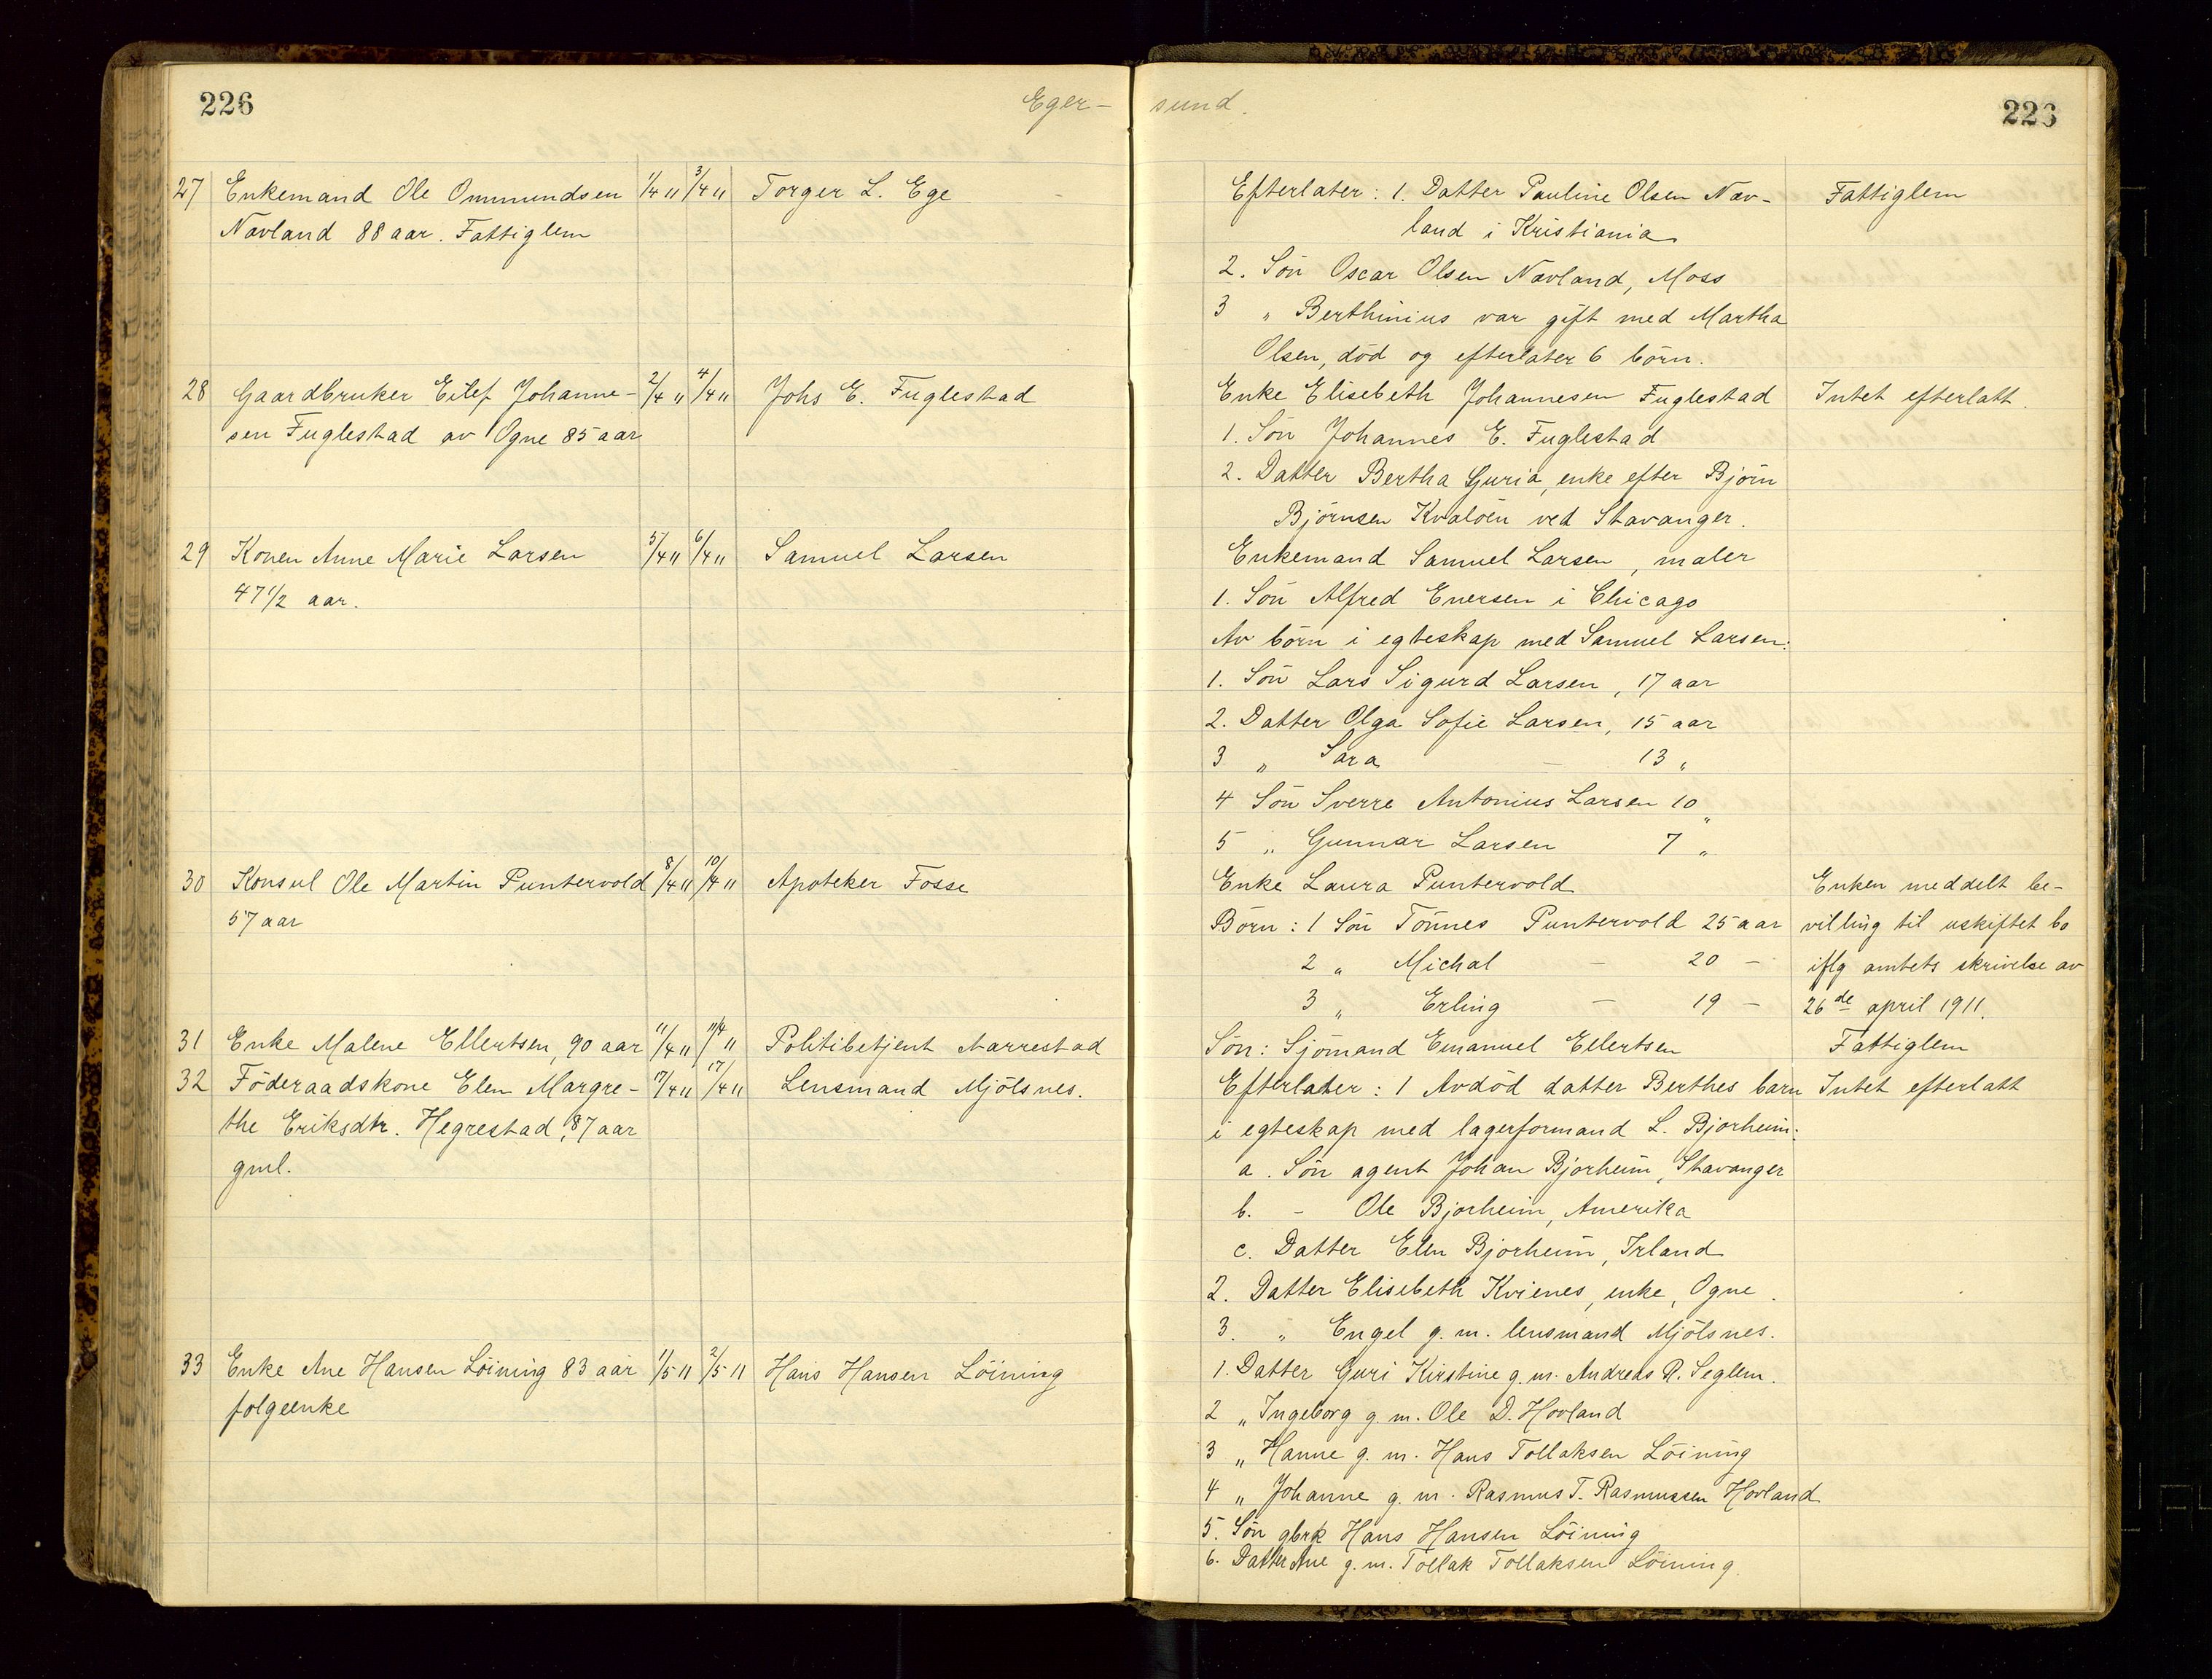 226
Eger-
sund.
226
27 Enkemand Ole Ommundsen 1/4 11 3/4 11 Torger L. Ege
Navland 88 aar. Fattiglem
Efterlater: 1. Datter Pauline Olsen Nav-
land i Kristiania
2. Sön Oscar Olsen Navland, Moss
3 „ Berthinius var gift med Martha
Olsen, död og efterlater 6 börn.
Fattiglem
28 Gaardbruker Eilef Johanne- 2/4 11 4/4 11 Johs E. Fuglestad
sen Fuglestad av Ogne 85 aar
Enke Elisebeth Johannesen Fuglestad
1. Sön Johannes E. Fuglestad
2. Datter Bertha Guria, enke efter Björn
Björnsen Kvalöen ved Stavanger.
Intet efterlatt.
29 Konen Anne Marie Larsen 5/4 11 6/4 11 Samuel Larsen
47 1/2 aar.
Enkemand Samuel Larsen, maler
1. Sön Alfred Enersen i Chicago
Av börn i egteskap med Samuel Larsen:
1. Sön Lars Sigurd Larsen, 17 aar
2. Datter Olga Sofie Larsen, 15 aar
3 „ Sara — 13 „
4 Sön Sverre Antonius Larsen 10 „
5 „ Gunnar Larsen 7 „
30 Konsul Ole Martin Puntervold 8/4 11 10/4 11 Apoteker Fosse
57 aar
Enke Laura Puntervold
Börn: 1 Sön Tönnes Puntervold 25 aar
2 „ Michal — 20 —
3 „ Erling — 19 —
Enken meddelt be-
villing til uskiftet bo
iflg amtets skrivelse av
26de april 1911.
31 Enke Malene Ellertsen, 90 aar 11/4 11 11/4 11 Politibetjent Aarrestad
Sön: Sjömand Emanuel Ellertsen
Fattiglem
32 Föderaadskone Elen Margre- 17/4 11 17/4 11 Lensmand Mjölsnes.
the Eriksdtr. Hegrestad, 87 aar
gml.
Efterlater: 1 Avdöd datter Berthes barn
i egteskap med lagerformand L. Bjorheim:
a. Sön agent Johan Bjorheim, Stavanger
b. - Ole Bjorheim, Amerika
c. Datter Elen Bjorheim, Irland
2. Datter Elisebeth Kvienes, enke, Ogne.
3. „ Engel g. m. lensmand Mjölsnes.
Intet efterlatt
33 Enke Ane Hansen Löining 83 aar 1/5 11 2/5 11 Hans Hansen Löining
folgeenke
1. Datter Guri Kirstine g. m. Andreas R. Seglem.
2 „ Ingeborg g. m. Ole D. Hovland
3 „ Hanne g. m. Hans Tollaksen Löining
4 „ Johanne g. m. Rasmus T. Rasmussen Hovland
5. Sön gbrk Hans Hansen Löining
6. Datter Ane g. m. Tollak Tollaksen Löining.